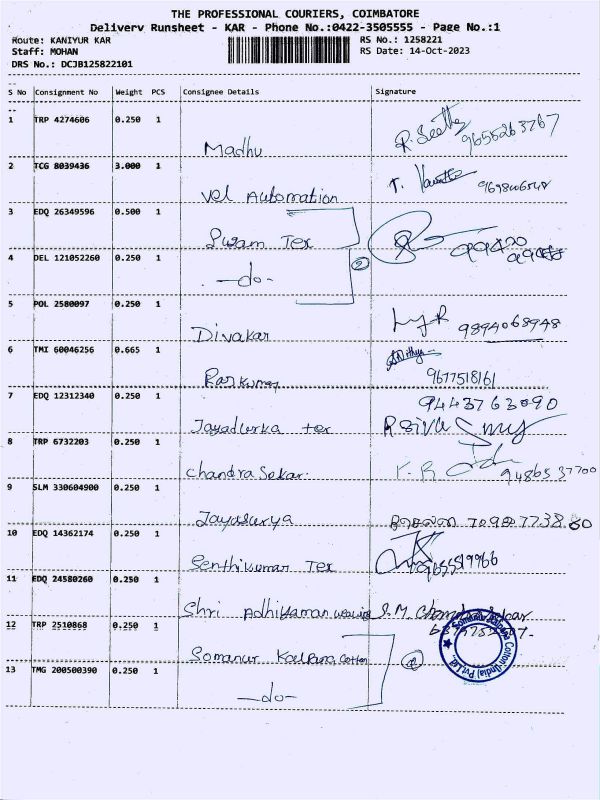 THE PROFESSIONAL COURIERS, COIMBATORE
Delivery Runsheet - KAR - Phone No.:0422-3505555 - Page No.:1
Route: KANIYUR KAR RS No.: 1258221
Staff: MOHAN RS Date: 14-Oct-2023
DRS No.: DCJB125822101
S No Consignment No Weight PCS Consignee Details Signature
1 TRP 4274606 0.250 1 Madhu 9655263767
2 TCG 8039436 3.000 1 Vel Automation
3 EDQ 26349596 0.500 1 Swam Tex
4 DEL 121052260 0.250 1 -do- 2
5 POL 2580097 0.250 1 Divakar 9894068948
6 TMI 60046256 0.665 1 Ramkumar 9677518161
7 EDQ 12312340 0.250 1 Jayadurka tex 9443763090
8 TRP 6732203 0.250 1 Chandra Sekar. 9486537700
9 SLM 330604900 0.250 1 Jayasurya
10 EDQ 14362174 0.250 1 Senthikumar Tex
11 EDQ 24580260 0.250 1 Shri Adhiyaman
12 TRP 2510868 0.250 1 Somanur Kalpana Cotton
13 TMG 200500390 0.250 1 -do-